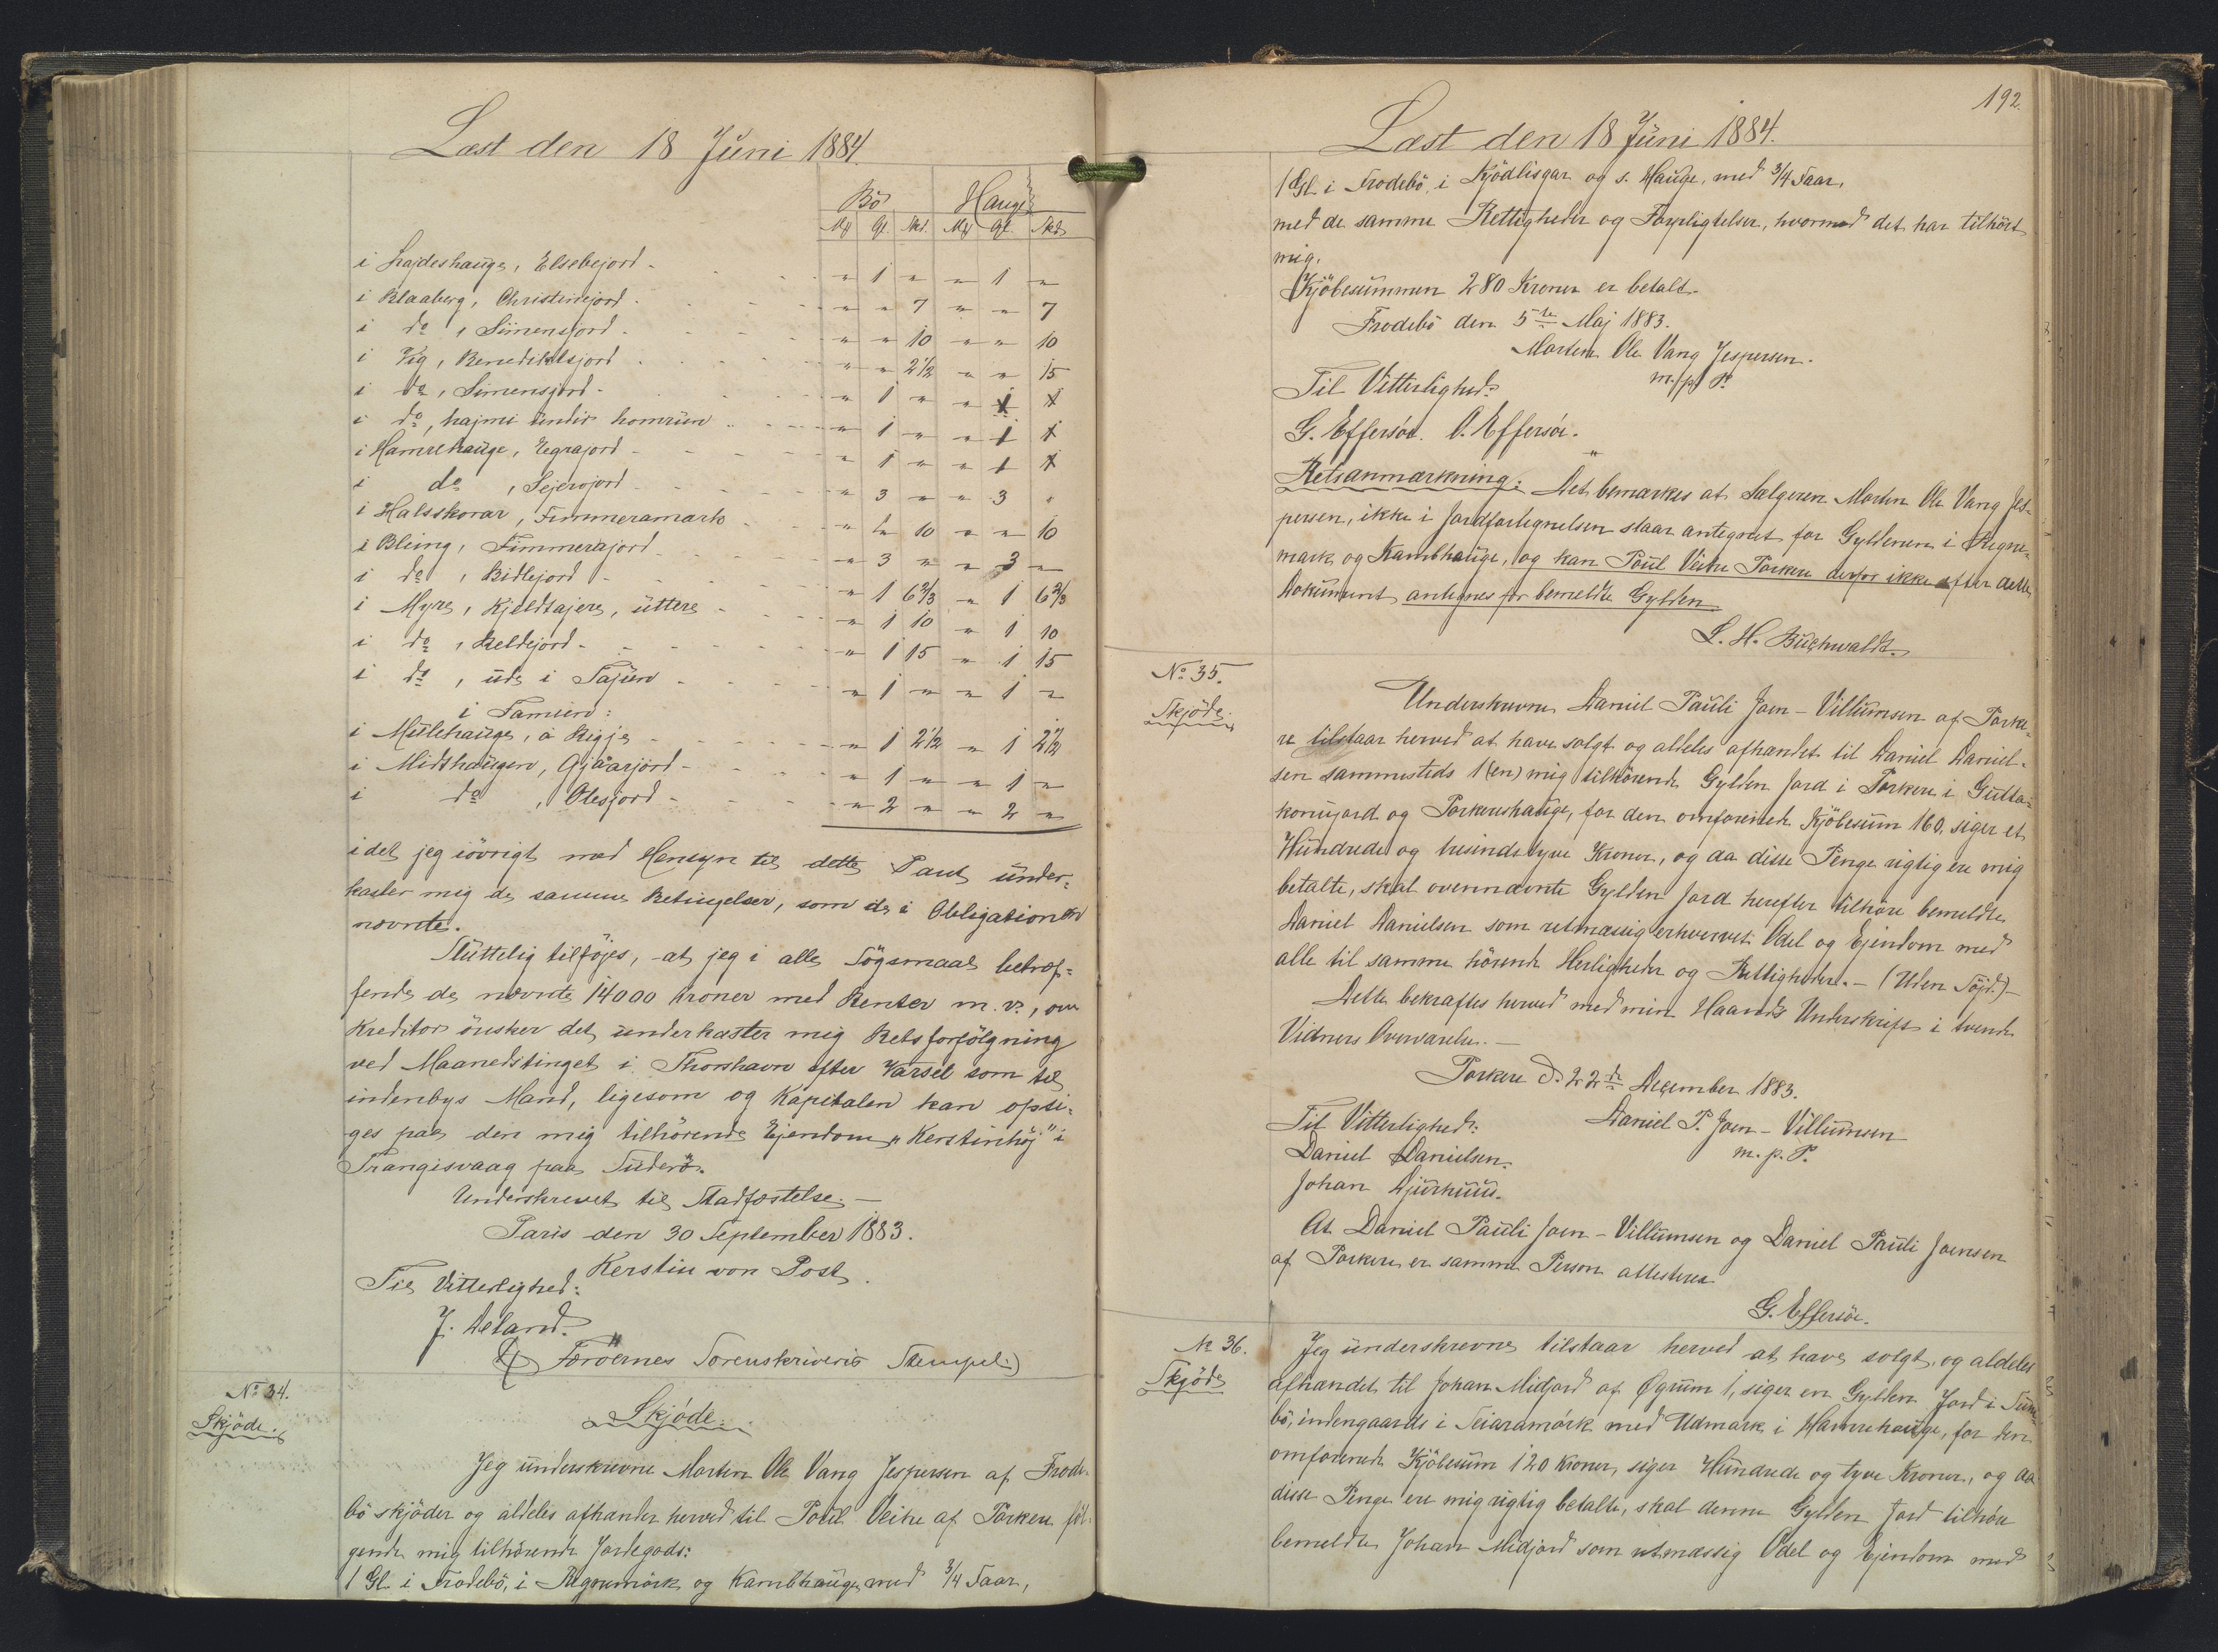 Læst den 18 Juni 1884.
Bö Hauge
Mk Gl. Skd. Mk Gl. Skd
i Lajdeshauge, Elsebejord - " 1 " " 1 "
i Blaaberg, Christinejord - " " 7 " " 7
i do, Simensjord - " " 10 " " 10
i Vig, Benediktsjord - " " 2 1/2 " " 15
i do, Simensjord - " 1 " " 1
i do, hajmi undir homrun - " 1 " " 1
i Hamrehauge, Egrajord - " 1 " " 1
i do, Sejerojord - " 3 " " 3 "
i Halsskorar, Fimmeramark - " " 10 " " 10
i Bleing, Fimmerajord - " 3 " " 3 "
i do, Bidlejord - " 1 6 2/3 " 1 6 2/3
i Myre, Kjeldtajere, uttere - " 1 10 " 1 10
i do, Keldejord - " 1 15 " 1 15
i do, ude i Tajun - " 1 " " 1 "
i Famien:
i Mulehauge, a Rigje - " 1 2 1/2 " 1 2 1/2
i Midthaugen, Gjaarjord - " 1 " " 1 "
i do, Olesjord - " 2 " " 2 "
idet jeg iövrigt med Hensyn til dette Pant under-
kaster mig de samme Betingelser, som de i Obligationen
nævnte.
Sluttelig tilföjes, at jeg i alle Sögsmaal betræf-
fende de nævnte 14000 Kroner med Renter m. v., om
Kreditor önsker det, underkaster mig Retsforfölgning
ved Maanedstinget i Thorshavn efter Varsel som til
indenbys Mand, ligesom og Kapitalen kan opsi-
ges paa den mig tilhörende Ejendom "Kerstinhöj" i
Trangisvaag paa Suderö.
Underskrevet til Stadfæstelse. —
Paris den 30 September 1883.
Kerstin von Post.
Til Vitterlighed:
J. Aeland.
(: Færöernes Sorenskriveris Stempel:)
No 34.
Skjöde.
Skjöde.
Jeg underskrevne Morten Ole Vang Jespersen af Frode-
bö skjöder og aldeles afhander herved til Poul Veihe af Porkere föl-
gende mig tilhörende Jordegods:
1 Gl. i Frodebö, i Regnemörk og Kambhauge, med 3/4 Faar,
192.
Læst den 18 Juni 1884.
1 Gl. i Frodebö, i Kjödlisgar og s. Hauge, med 3/4 Faar,
med de samme Rettigheder og Forpligtelser, hvormed det har tilhört
mig.
Kjöbesummen 280 Kroner er betalt.
Frodebö den 5te Maj 1883.
Morten Ole Vang Jespersen.
m. p. P.
Til Vitterlighed:
G. Effersöe. O. Effersöe.
Retsanmærkning: Det bemærkes at Sælgeren Morten Ole Vang Jes-
persen, ikke i Jordfortegnelsen staar antegnet for Gyldenen i Regne-
mark og Kambhauge, og kan Poul Veihe Porkere derfor ikke efter dette
Dokument antegnes for bemeldte Gylden
L. H. Buchwaldt.
No. 35.
Skjöde.
Underskrevne Daniel Pauli Joen-Villumsen af Porke-
re tilstaar herved at have solgt og aldeles afhændet til Daniel Daniel-
sen sammesteds 1 (en) mig tilhörende Gylden Jord i Porkere i Gutta-
konujord og Porkereshauge, for den omforenede Kjöbesum 160. siger et
Hundrede og tresindstyve Kroner, og da disse Penge rigtig ere mig
betalte, skal ovennævnte Gylden Jord herefter tilhöre bemeldte
Daniel Danielsen som retmæssig erhvervet Odel og Ejendom med
alle til samme hörende Herligheder og Rettigheder. — (Uden Töjd.) —
Dette bekræftes herved med min Haands Underskrift i tvende
Vidners Overværelse. —
Porkere d. 22de December 1883.
Daniel P. Joen-Villumsen
m. p. P.
Til Vitterlighed:
Daniel Danielsen.
Johan Djurhuus.
At Daniel Pauli Joen-Villumsen og Daniel Pauli Joensen
af Porkere er samme Person attesteres
G. Effersöe.
No 36.
Skjöde
Jeg underskrevne tilstaar herved at have solgt og aldeles
afhændet til Johan Midjord af Øgrum 1, siger en Gylden Jord i Sum-
bö, indengaards i Seiaramörk med Udmark i Hamrehauge, for den
omforenede Kjöbesum 120 Kroner, siger Hundrede og tyve Kroner, og da
disse Penge ere mig rigtig betalte, skal denne Gylden Jord tilhöre
bemeldte Johan Midjord som retmæssig Odel og Ejendom med